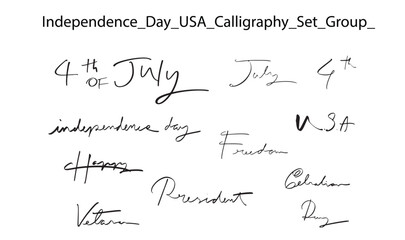 Independence_Day_USA_Calligraphy_Set_Group_
4th OF July
July
4th
independence day
USA
Freedom
Happy
President
Veteran